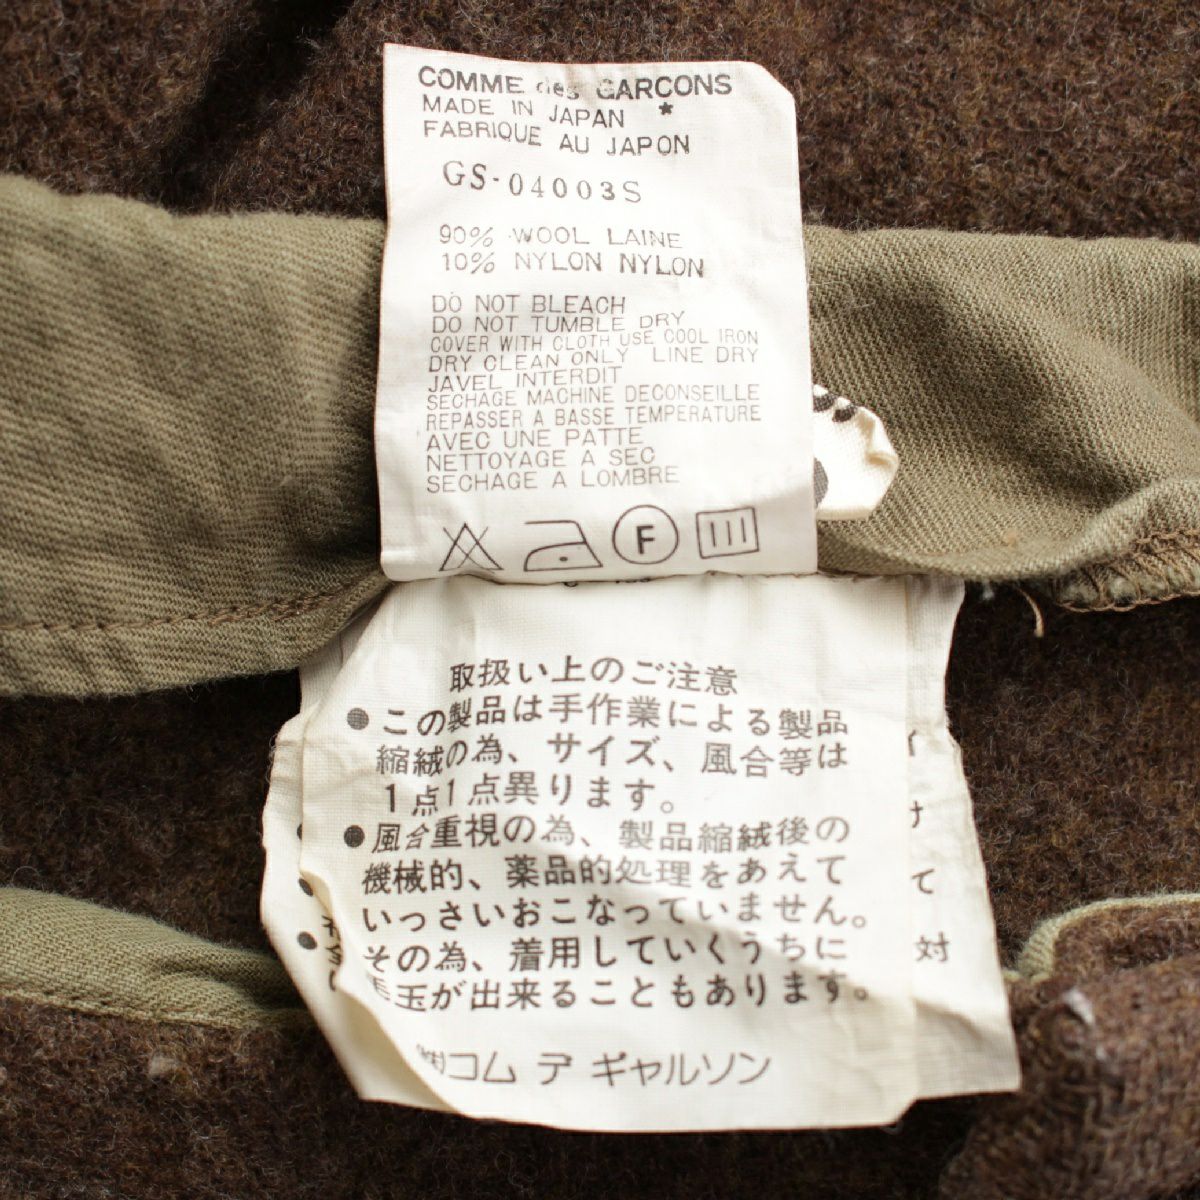 COMME des GARCONS
MADE IN JAPAN *
FABRIQUE AU JAPON
GS-04003S
90% WOOL LAINE
10% NYLON NYLON
DO NOT BLEACH
DO NOT TUMBLE DRY
COVER WITH CLOTH USE COOL IRON
DRY CLEAN ONLY LINE DRY
JAVEL INTERDIT
SECHAGE MACHINE DECONSEILLE
REPASSER A BASSE TEMPERATURE
AVEC UNE PATTE
NETTOYAGE A SEC
SECHAGE A LOMBRE
F
取扱い上のご注意
●この製品は手作業による製品
縮絨の為、サイズ、風合等は
1点1点異ります。
●風合重視の為、製品縮絨後の
機械的、薬品的処理をあえて
いっさいおこなっていません。
その為、着用していくうちに
毛玉が出来ることもあります。
㈱コム デ ギャルソン
け
て
対